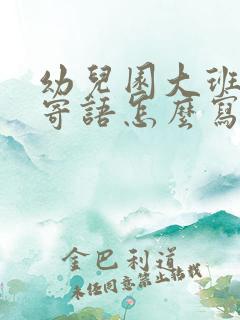 幼兒園大班
寄語怎麼寫
金巴利道
未经同意禁止转载